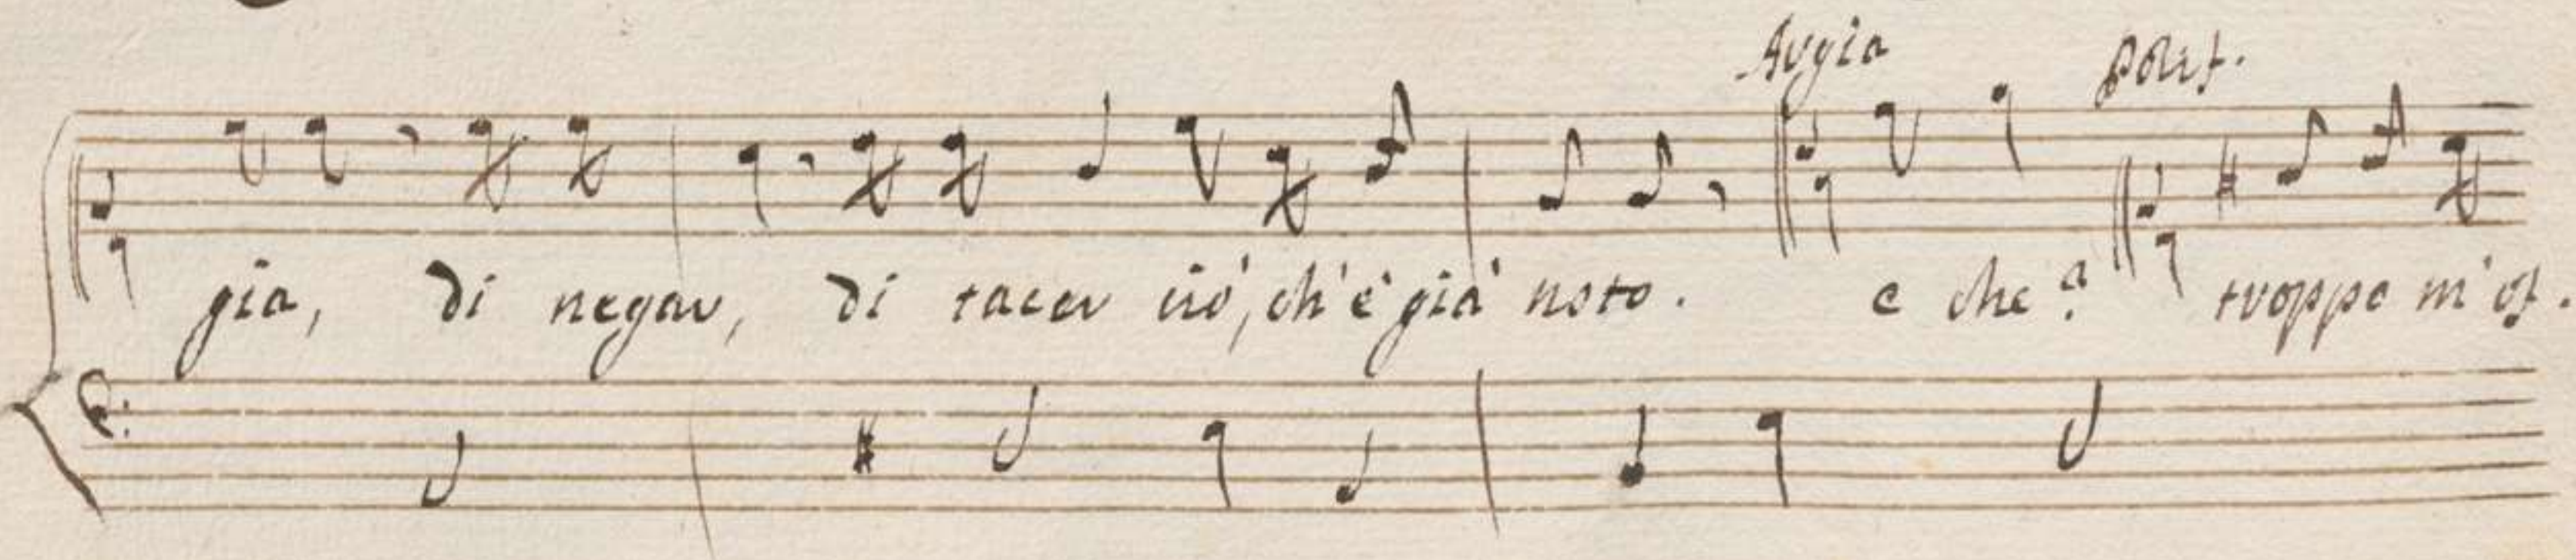 Argia Polif.
gia, di negar, di tacer ciò, ch'è già noto. e che? troppo m'of.